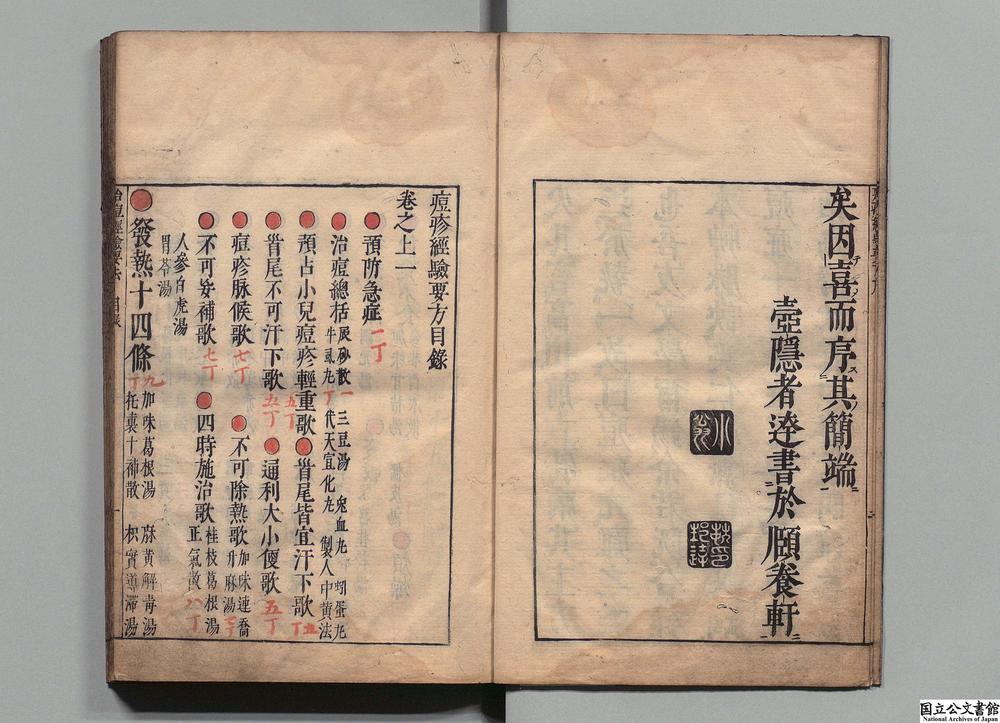 矣因喜而序其簡端
壺隱者逵書於頤養軒
痘疹經驗要方目錄
卷之上一
預防急症 一丁
治痘總括 辰砂散 一 三豆湯 兔血丸
牛虱丸 丁 代天宣化丸 製人中黃法
預占小兒痘疹輕重歌 五丁 首尾皆宜汗下歌 五丁
首尾不可汗下歌 五丁 通利大小便歌 五丁
痘疹脉候歌 七丁 不可除熱歌 加味連喬
升麻湯
不可妄補歌 七丁 四時施治歌 桂枝葛根湯
正氣散 八丁
人參白虎湯
胃苓湯
發熱十四條 九丁 加味葛根湯 麻黃解毒湯
托裏十神散 枳實導滯湯
国立公文書館
National Archives of Japan